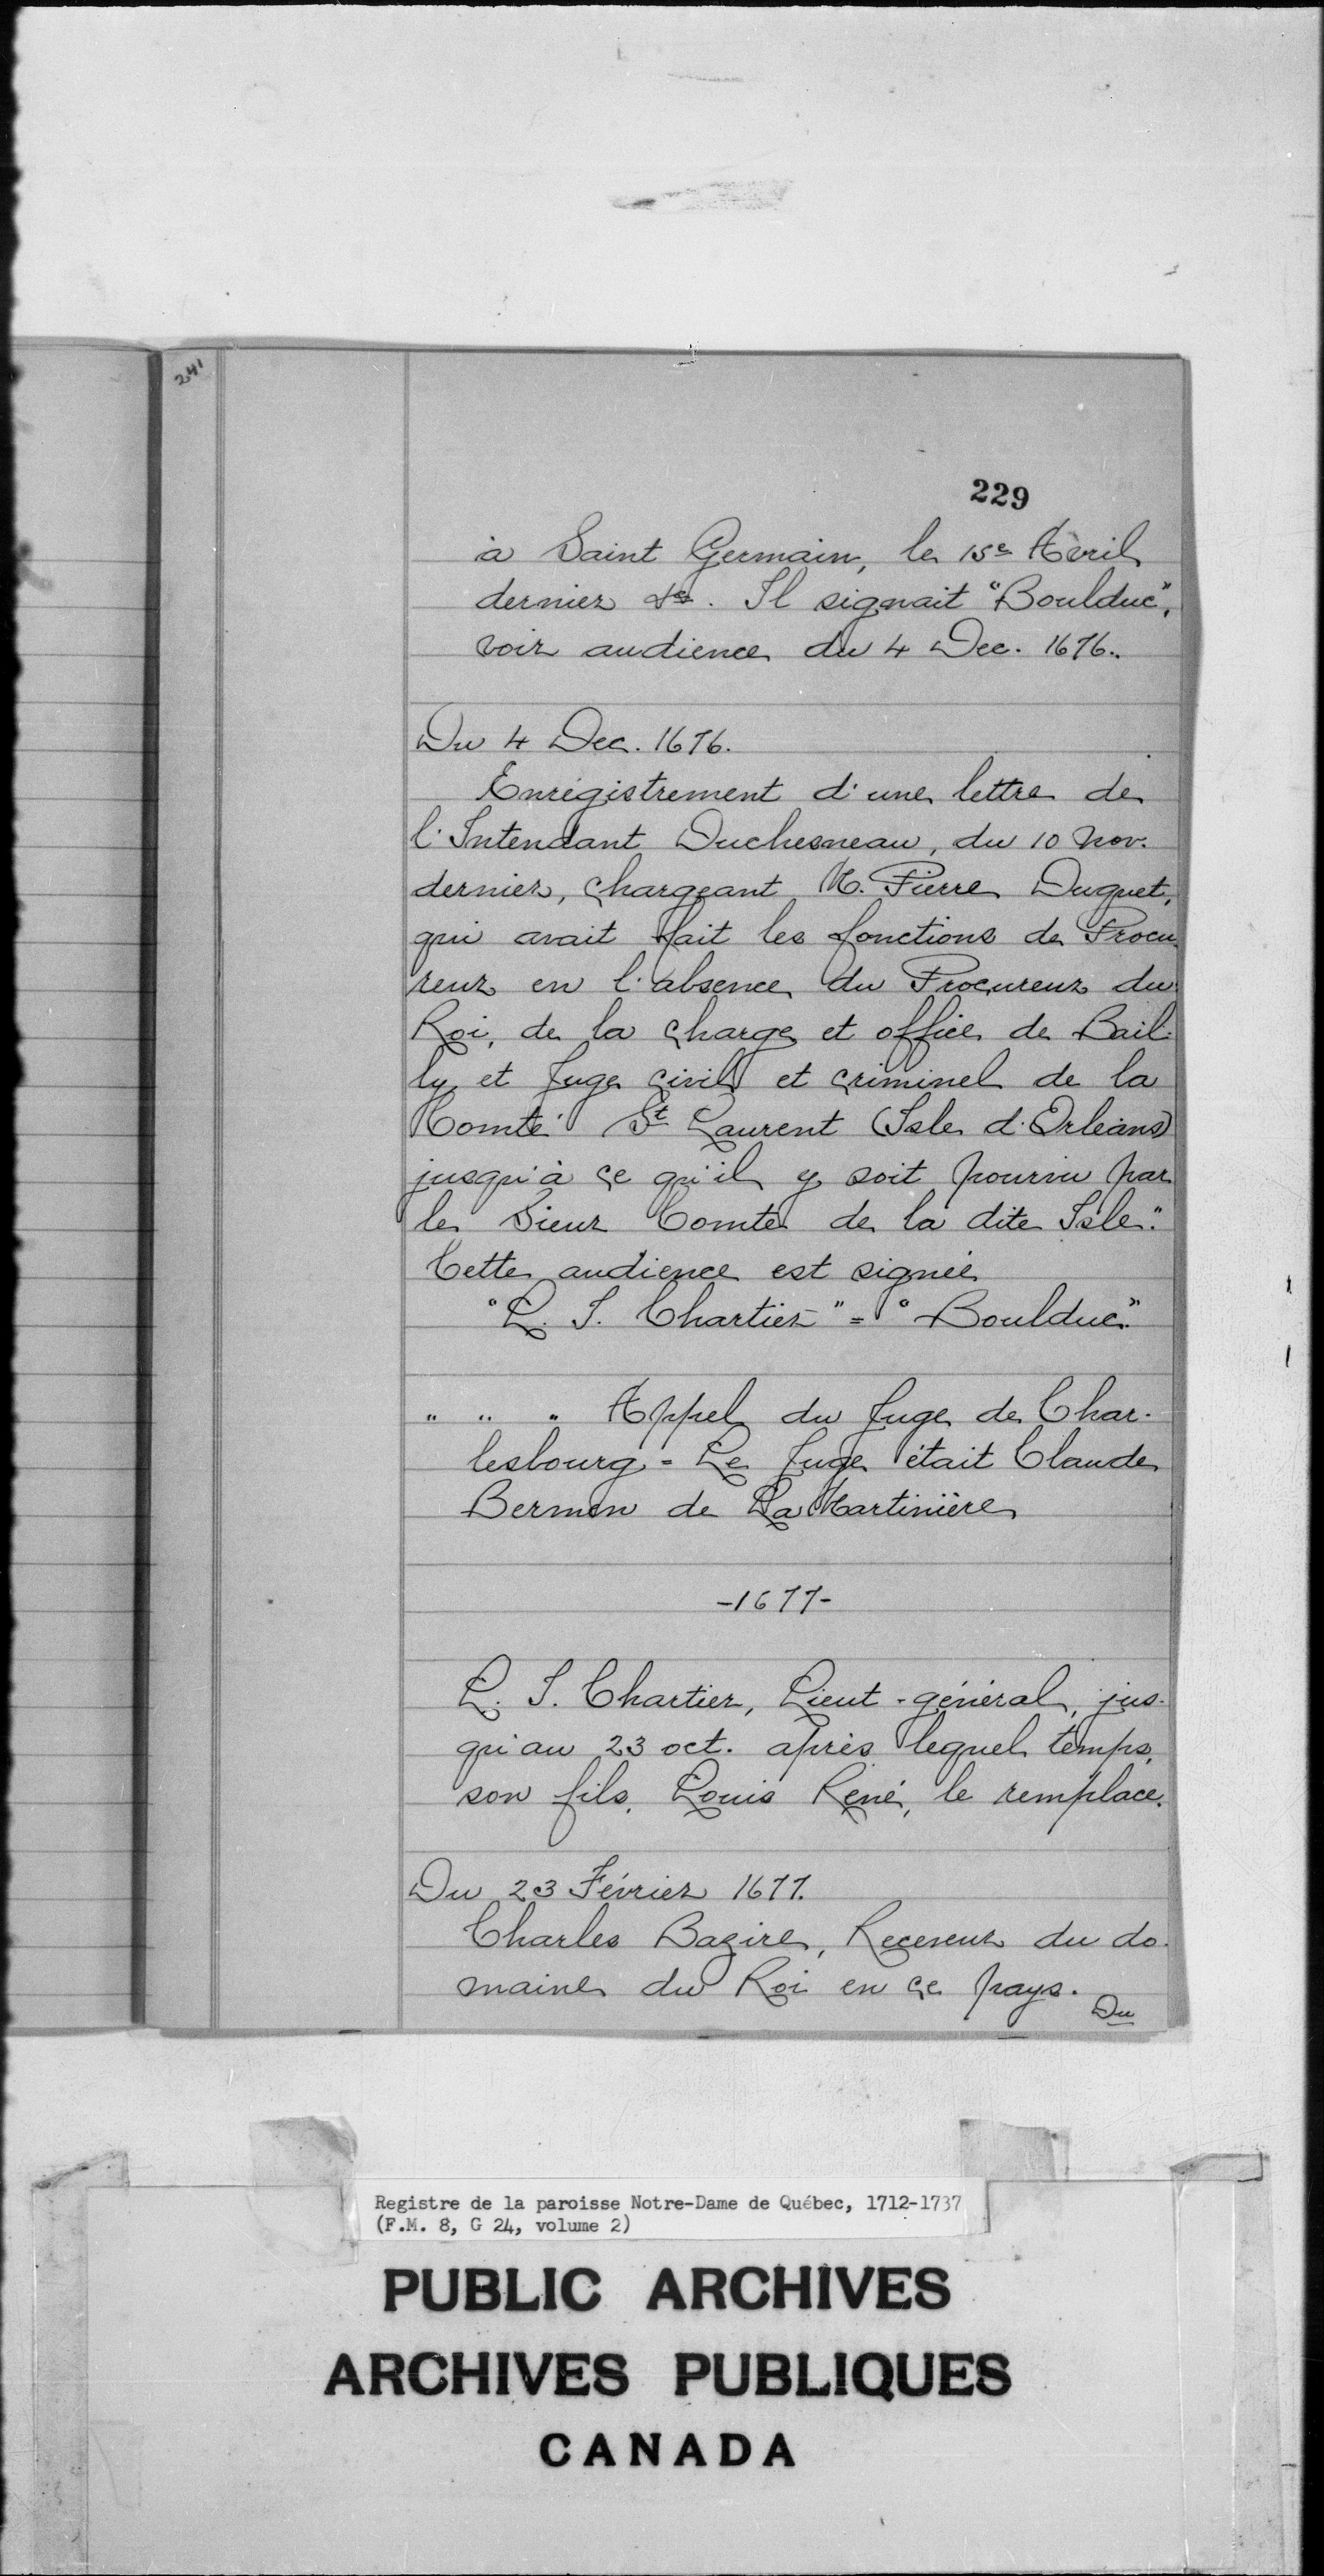 241
229
à Saint Germain, le 15e Avril
dernier &c. Il signait "Boulduc",
voir audience du 4 Dec. 1676.
Du 4 Dec. 1676.
Enrégistrement d'une lettre de
l'Intendant Duchesneau, du 10 Nov.
dernier, chargeant M. Pierre Duquet,
qui avait fait les fonctions de Procu-
reur en l'absence du Procureur du
Roi, de la charge et office de Bail-
ly et Juge civil et criminel de la
Comté St Laurent (Isle d'Orléans)
jusqu'à ce qu'il y soit pourvu par
le Sieur Comte de la dite Isle."
Cette audience est signée
"L. T. Chartier" = "Boulduc."
" " " Appel du Juge de Char-
lesbourg = Le Juge était Claude
Bermen de La Martinière
-1677-
L. T. Chartier, Lieut-général, jus-
qu'au 23 oct. après lequel temps,
son fils, Louis René, le remplace.
Du 23 Février 1677.
Charles Bazire, Receveur du do-
maine du Roi en ce pays.
Du
Registre de la paroisse Notre-Dame de Québec, 1712-1737
(F.M. 8, G 24, volume 2)
PUBLIC ARCHIVES
ARCHIVES PUBLIQUES
CANADA